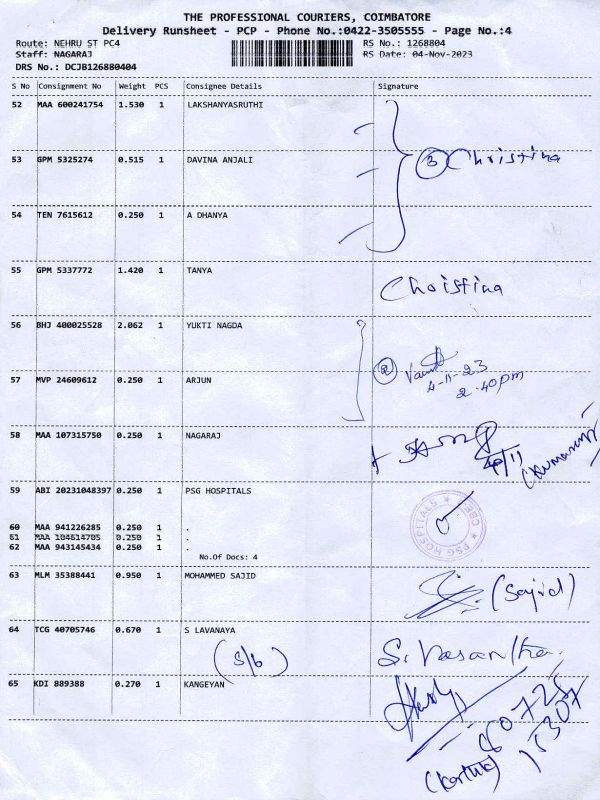 THE PROFESSIONAL COURIERS, COIMBATORE
Delivery Runsheet - PCP - Phone No.:0422-3505555 - Page No.:4
Route: NEHRU ST PC4 RS No.: 1268804
Staff: NAGARAJ RS Date: 04-Nov-2023
DRS No.: DCJB126880404
S No Consignment No Weight PCS Consignee Details Signature
52 MAA 600241754 1.530 1 LAKSHANYASRUTHI
53 GPM 5325274 0.515 1 DAVINA ANJALI 3 Christina
54 TEN 7615612 0.250 1 A DHANYA
55 GPM 5337772 1.420 1 TANYA Christina
56 BHJ 400025528 2.062 1 YUKTI NAGDA
2
4-11-23
2.40pm
57 MVP 24609612 0.250 1 ARJUN
58 MAA 107315750 0.250 1 NAGARAJ
59 ABI 20231048397 0.250 1 PSG HOSPITALS
PSG HOSPITALS
60 MAA 941226285 0.250 1 .
61 MAA 104614705 0.250 1 .
62 MAA 943145434 0.250 1 .
No.Of Docs: 4
63 MLM 35388441 0.950 1 MOHAMMED SAJID (Sajid)
64 TCG 40705746 0.670 1 S LAVANAYA S. Vasantha.
(S/b)
65 KDI 889388 0.270 1 KANGEYAN
(Karthik)